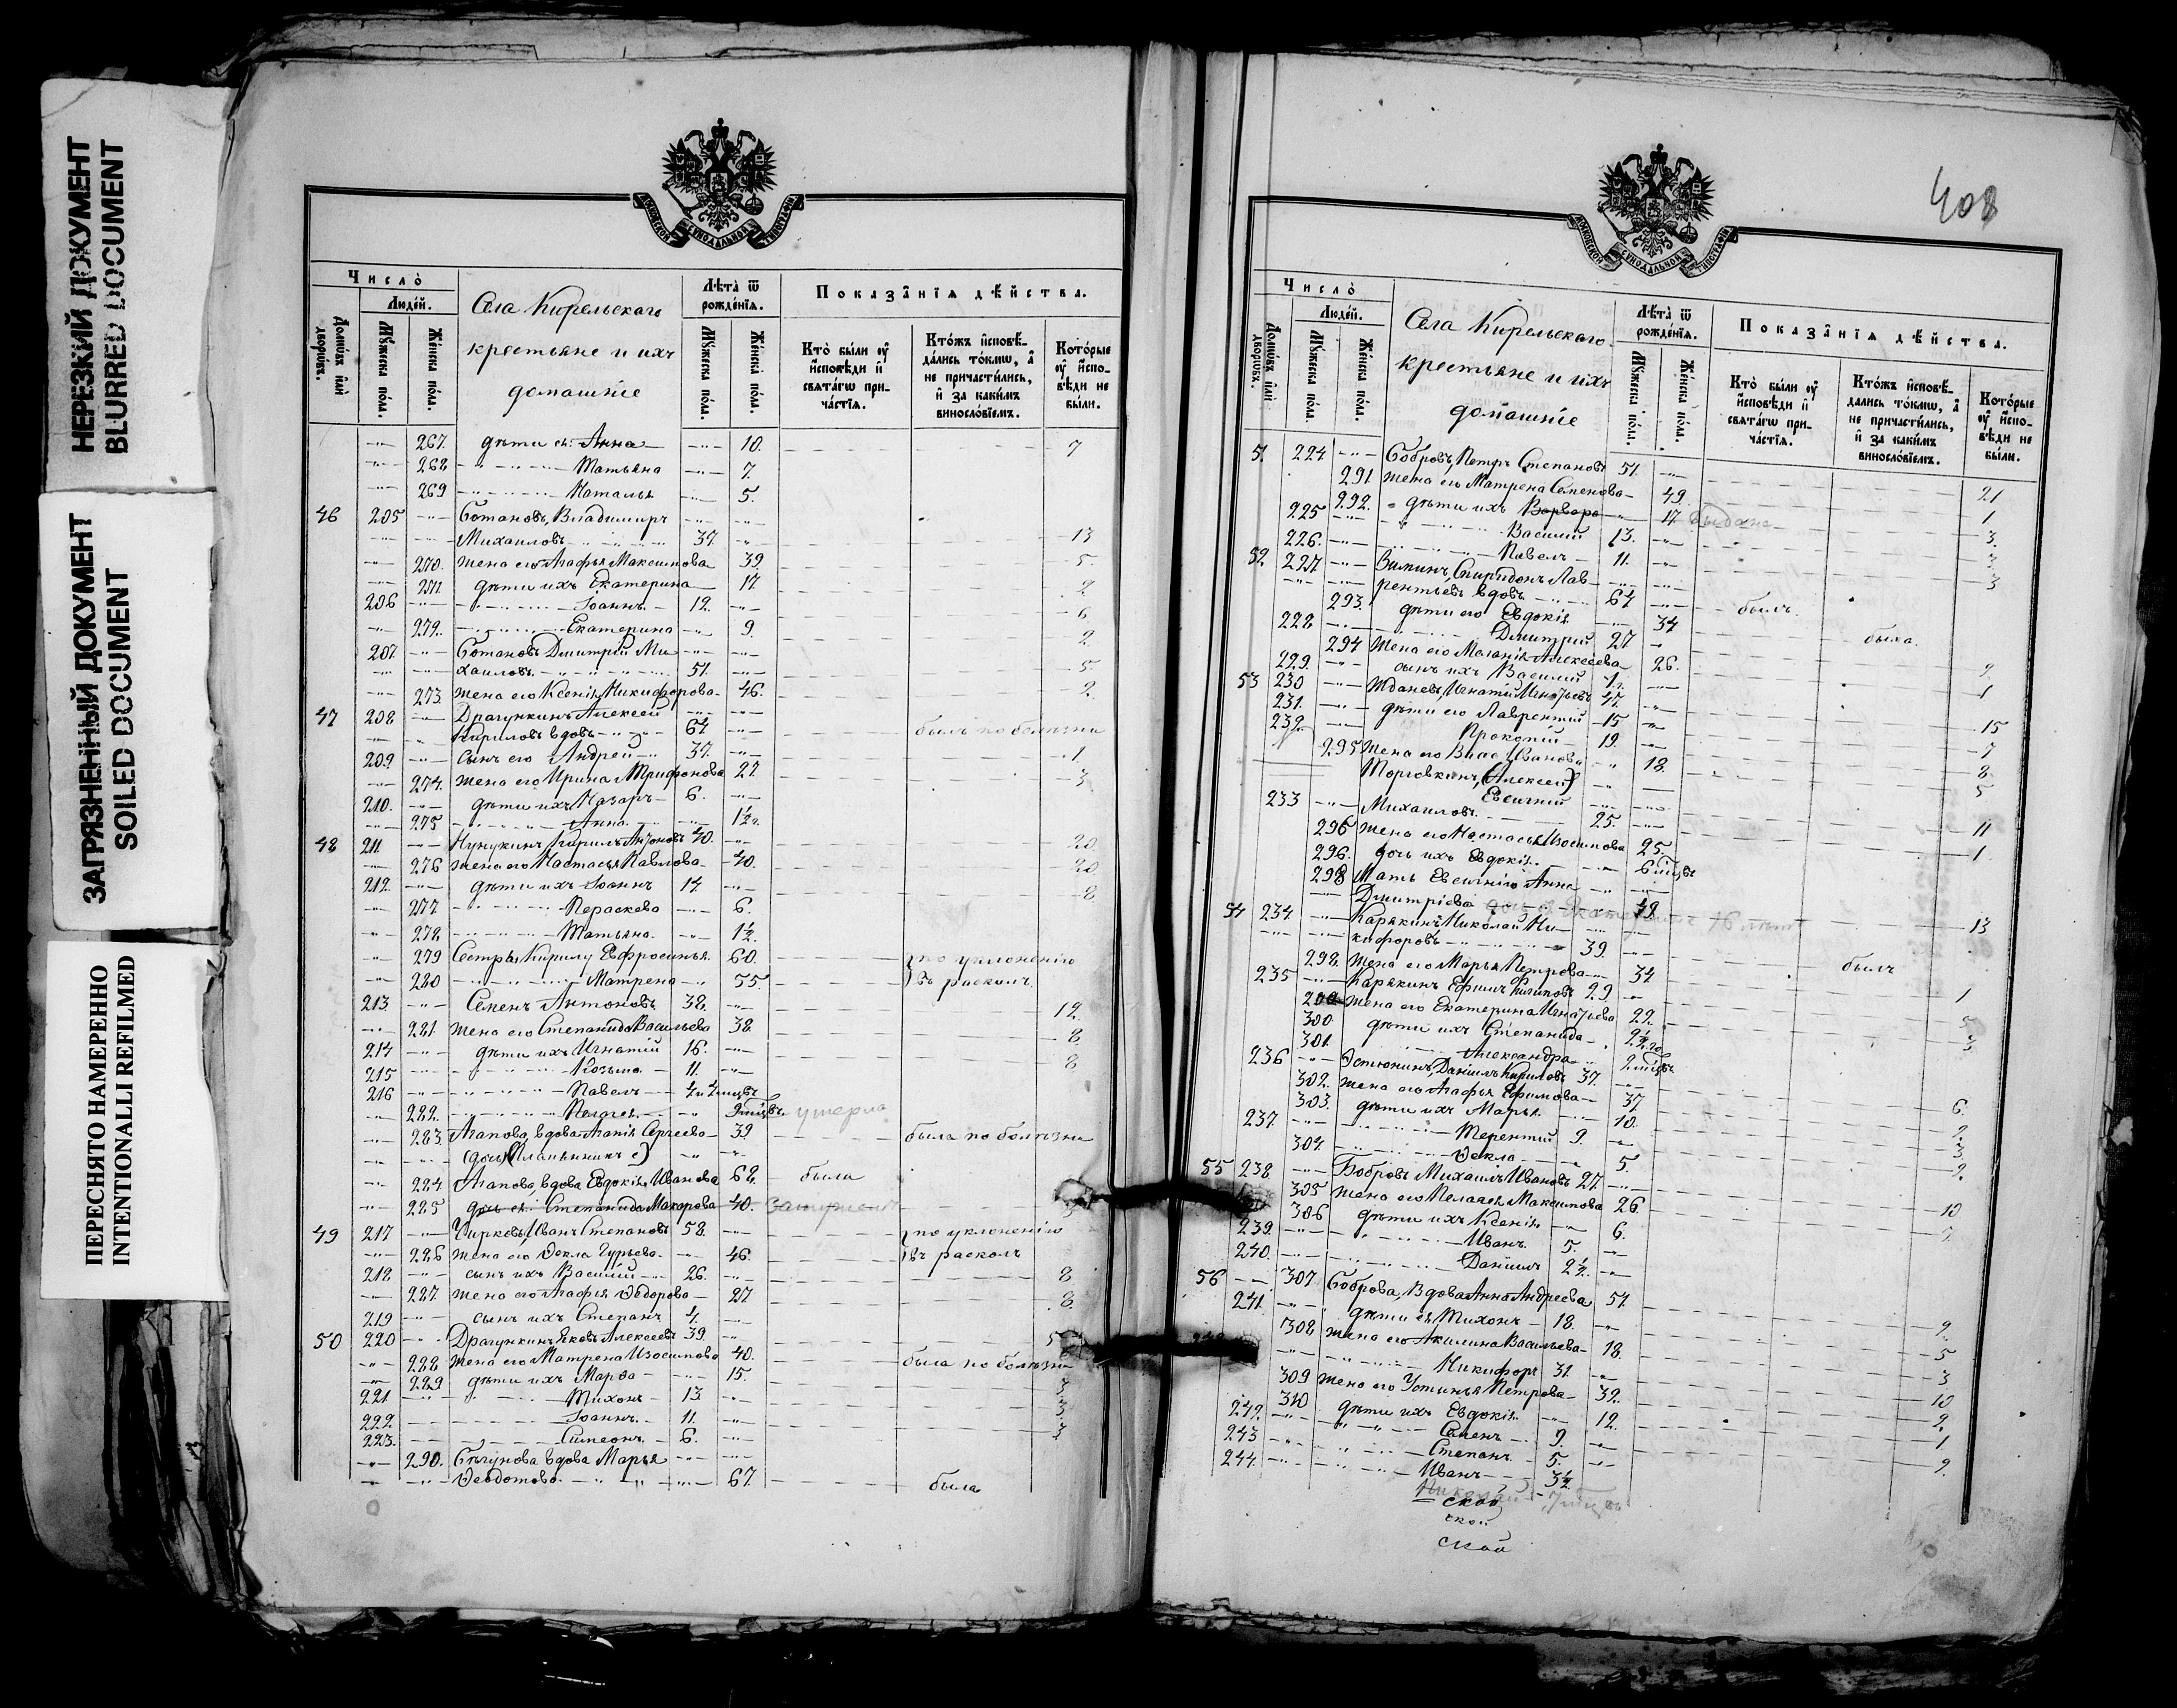 НЕРЕЗКИЙ ДОКУМЕНТ
BLURRED DOCUMENT
ЗАГРЯЗНЕННЫЙ ДОКУМЕНТ
SOILED DOCUMENT
ПЕРЕСНЯТО НАМЕРЕННО
INTENTIONALLI REFILMED
МОСКОВСКОЙ СѴНОДАЛЬНОЙ ТИПОГРАФІИ
Число
Людей.
Домѡвъ или дворовъ.
Мꙋжеска пола.
Женска пола.
Села Кирельскаго
крестьяне и ихъ
домашніе
Лѣта ѿ рожденія.
Мꙋжеска пола.
Женска пола.
Показанія дѣйства.
Кто были ꙋ исповѣди и свѧтагѡ причастія.
Ктожъ исповѣдались токмѡ, а не причастились, и за какимъ винословіемъ.
Которые ꙋ исповѣди не были.
267. дѣти ея: Анна 10. 7
268 Татьяна 7.
269 Наталья 5.
46 205 Ботановъ, Владимиръ
Михаиловъ 37. 13
270. жена его Агафья Максимова 39. 5.
271. дѣти ихъ Екатерина 17. 2
206 Іоаннъ 12. 6
272. Екатерина 9. 2
207. Ботановъ Дмитрій Ми
хаиловъ 51. 5
273. жена его Ксенія Никифорова 46. 2.
47 208 Драгункинъ Алексей
Кириловъ вдовъ 64 былъ по болѣзни
209 Сынъ его Андрей 37. 1
274. жена его Ирина Трифонова 27. 3
210. дѣти ихъ Назаръ 6.
275 Анна 1½.
48 211 Кирилъ Антоновъ 40. 20
276 жена его Настасья Павлова 40. 20
212. дѣти ихъ Іоаннъ 14. 8
277 Пераскева 6.
278. Татьяна. 1½.
279 Сестры Кирилу Евфросинья 60. по уклоненію
280 Матрена 55. въ расколъ
213. Семенъ Антоновъ 38. 12.
281. жена его Степанида Васильева 38. 8
214 дѣти ихъ Игнатій 16. 8
215 Козьма 11.
216 Павелъ
282. Пелагея умерла
283. Агапова, вдова Агапія Сергеева 39. была по болѣзни
284. Агапова, вдова Евдокія Иванова 68. была
285 дочь ея Степанида Макарова 40. замужемъ
49 217 Чирковъ, Иванъ Степановъ 58. по уклоненію
286 жена его Ѳекла Гурьева 46. въ расколъ
218 сынъ ихъ Василій 26. 8
287. жена его Агафья Ѳедорова 27 8
219 сынъ ихъ Степанъ 4.
50 220 Драгункинъ Яковъ Алексеевъ 39. 5
288 жена его Матрена Изосимова 40. была по болѣзни
289 дѣти ихъ Марѳа 15
221 Тихонъ 13 3
222. Іоаннъ 11. 3
223. Симеонъ 6. 3
290. Бѣгунова вдова Марья
Ѳеодотова 67. была
408
МОСКОВСКОЙ СѴНОДАЛЬНОЙ ТИПОГРАФІИ
Число
Людей.
Домѡвъ или дворовъ.
Мꙋжеска пола.
Женска пола.
Села Кирельскаго
крестьяне и ихъ
домашніе
Лѣта ѿ рожденія.
Мꙋжеска пола.
Женска пола.
Показанія дѣйства.
Кто были ꙋ исповѣди и свѧтагѡ причастія.
Ктожъ исповѣдались токмѡ, а не причастились, и за какимъ винословіемъ.
Которые ꙋ исповѣди не были.
51 224 Бобровъ, Петръ Степановъ 51. 21
291. жена его Матрена Семенова 49. 1
292. дѣти ихъ Варвара 17 выдана
225 Василій 13. 3.
226. Павелъ 11. 3
52 227 Зиминъ, Спиридонъ Лав
рентьевъ вдовъ 64 былъ.
293. дѣти его Евдокія 34 была.
228. Дмитрій 27
294 жена его Маланія Алексеева 26.
229. сынъ ихъ Василій
53 230 Ждановъ, Игнатій Игнатьевъ 47. 15
231. дѣти его Лаврентій 15 7
232 Прокопій 19. 8
295 жена его Иванова 18. 5
Торговкинъ, (Алексей)
Евсигній
233 Михаиловъ 25. 11
296 жена его Настасья Изосимова 25. 1
296. дочь ихъ Евдокія
298 Мать Евсигнія Анна
Дмитріева 13
54 234 Карякинъ Николай Ни
кифоровъ 39. былъ
298. жена его Марья Петрова 34 1
235 Карякинъ Ефимъ 29. 5
жена его Екатерина Игнатьева 22. 3
300 дѣти ихъ Степанида
301. Александра
236 Данилъ Кириловъ 37. 6.
302. жена его Агафья Ефимова 37 2
303. дѣти ихъ Марья 10. 3.
237. Терентій 9. 2.
304. Ѳекла 5.
55 238. Бобровъ Михаилъ Ивановъ 27. 10
305 жена его Пелагея Максимова 26 7
306 дѣти ихъ Ксенія 6.
239. Иванъ 5.
240. Данилъ 2½.
56 307 Боброва, Вдова Анна Андреева 54. 9
241. дѣти ея Тихонъ 18. 5
308 жена его Акилина Васильева 18. 3
Никифоръ 31. 10
309 жена его Устинья Петрова 32. 2.
310 дѣти ихъ Евдокія 12. 1
242. Семенъ 9. 9.
243 Степанъ 5.
244. Иванъ 3½
Николай
ской
ской
ской